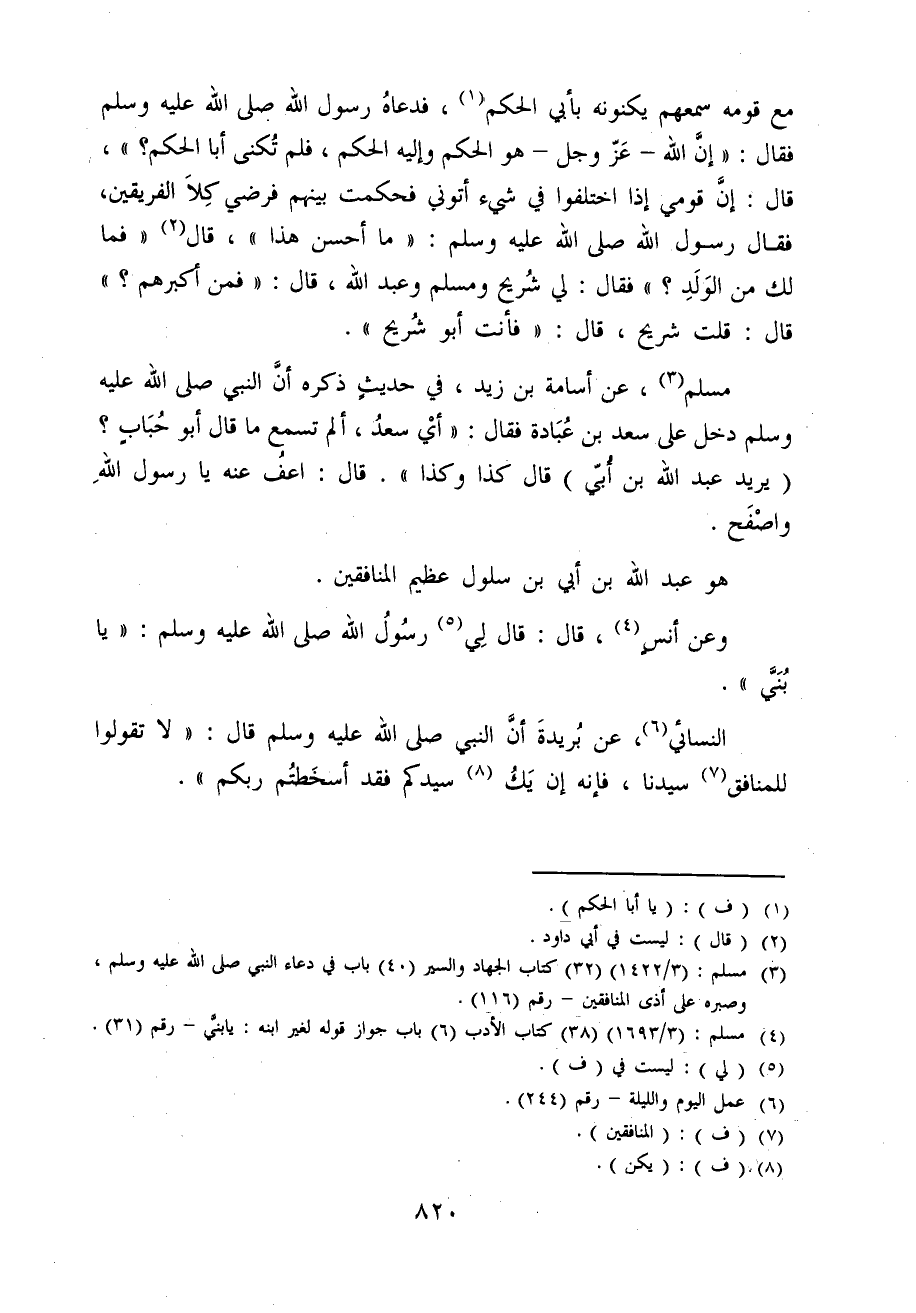 مع قومه سمعهم يكنونه بأبي الحكم(١) ، فدعاهُ رسول الله صلى الله عليه وسلم
فقال : « إنَّ الله – عَزّ وجل – هو الحكم وإليه الحكم ، فلم تُكنى أبا الحكم؟ » ،
قال : إنَّ قومي إذا اختلفوا في شيء أتوني فحكمت بينهم فرضي كِلاَ الفريقين،
فقال رسول الله صلى الله عليه وسلم : « ما أحسن هذا » ، قال(٢) « فما
لك من الوَلَدِ ؟ » فقال : لي شُريح ومسلم وعبد الله ، قال : « فمن أكبرهم ؟ »
قال : قلت شريح ، قال : « فأنت أبو شُريح » .
مسلم(٣) ، عن أسامة بن زيد ، في حديثٍ ذكره أنَّ النبي صلى الله عليه
وسلم دخل على سعد بن عُبَادة فقال : « أيْ سعدُ ، ألم تسمع ما قال أبو حُبَابٍ ؟
( يريد عبد الله بن أُبيّ ) قال كذا وكذا » . قال : اعفُ عنه يا رسول اللهِ
واصْفَح .
هو عبد الله بن أبي بن سلول عظيم المنافقين .
وعن أنسٍ(٤) ، قال : قال لِي(٥) رسُولُ الله صلى الله عليه وسلم : « يا
بُنَيَّ » .
النسائي(٦)، عن بُريدةَ أنَّ النبي صلى الله عليه وسلم قال : « لا تقولوا
للمنافق(٧) سيدنا ، فإنه إن يَكُ (٨) سيدكم فقد أسخَطتُم ربكم » .
(١) ( ف ) : ( يا أبا الحكم ) .
(٢) ( قال ) : ليست في أبي داود .
(٣) مسلم : (١٤٢٢/٣) (٣٢) كتاب الجهاد والسير (٤٠) باب في دعاء النبي صلى الله عليه وسلم ،
وصبره على أذى المنافقين – رقم (١١٦) .
(٤) مسلم : (١٦٩٣/٣) (٣٨) كتاب الأدب (٦) باب جواز قوله لغير ابنه : يابنيَّ – رقم (٣١) .
(٥) ( لي ) : ليست في ( ف ) .
(٦) عمل اليوم والليلة – رقم (٢٤٤) .
(٧) ( ف ) : ( المنافقين ) .
(٨) ( ف ) : ( يكن ) .
٨٢٠